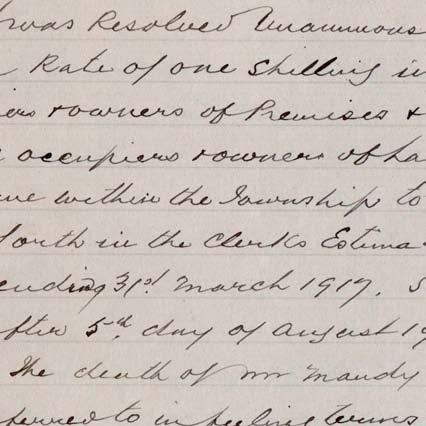 was Resolved Unanimous
Rate of one Shilling in
iers & owners of Premises &
occupiers & owners of La
within the Township to
forth in the Clerks Estima
ending 31st. March 1917. S
after 5th. day of August 19
The death of Mr Mandy
ferred to in feeling terms